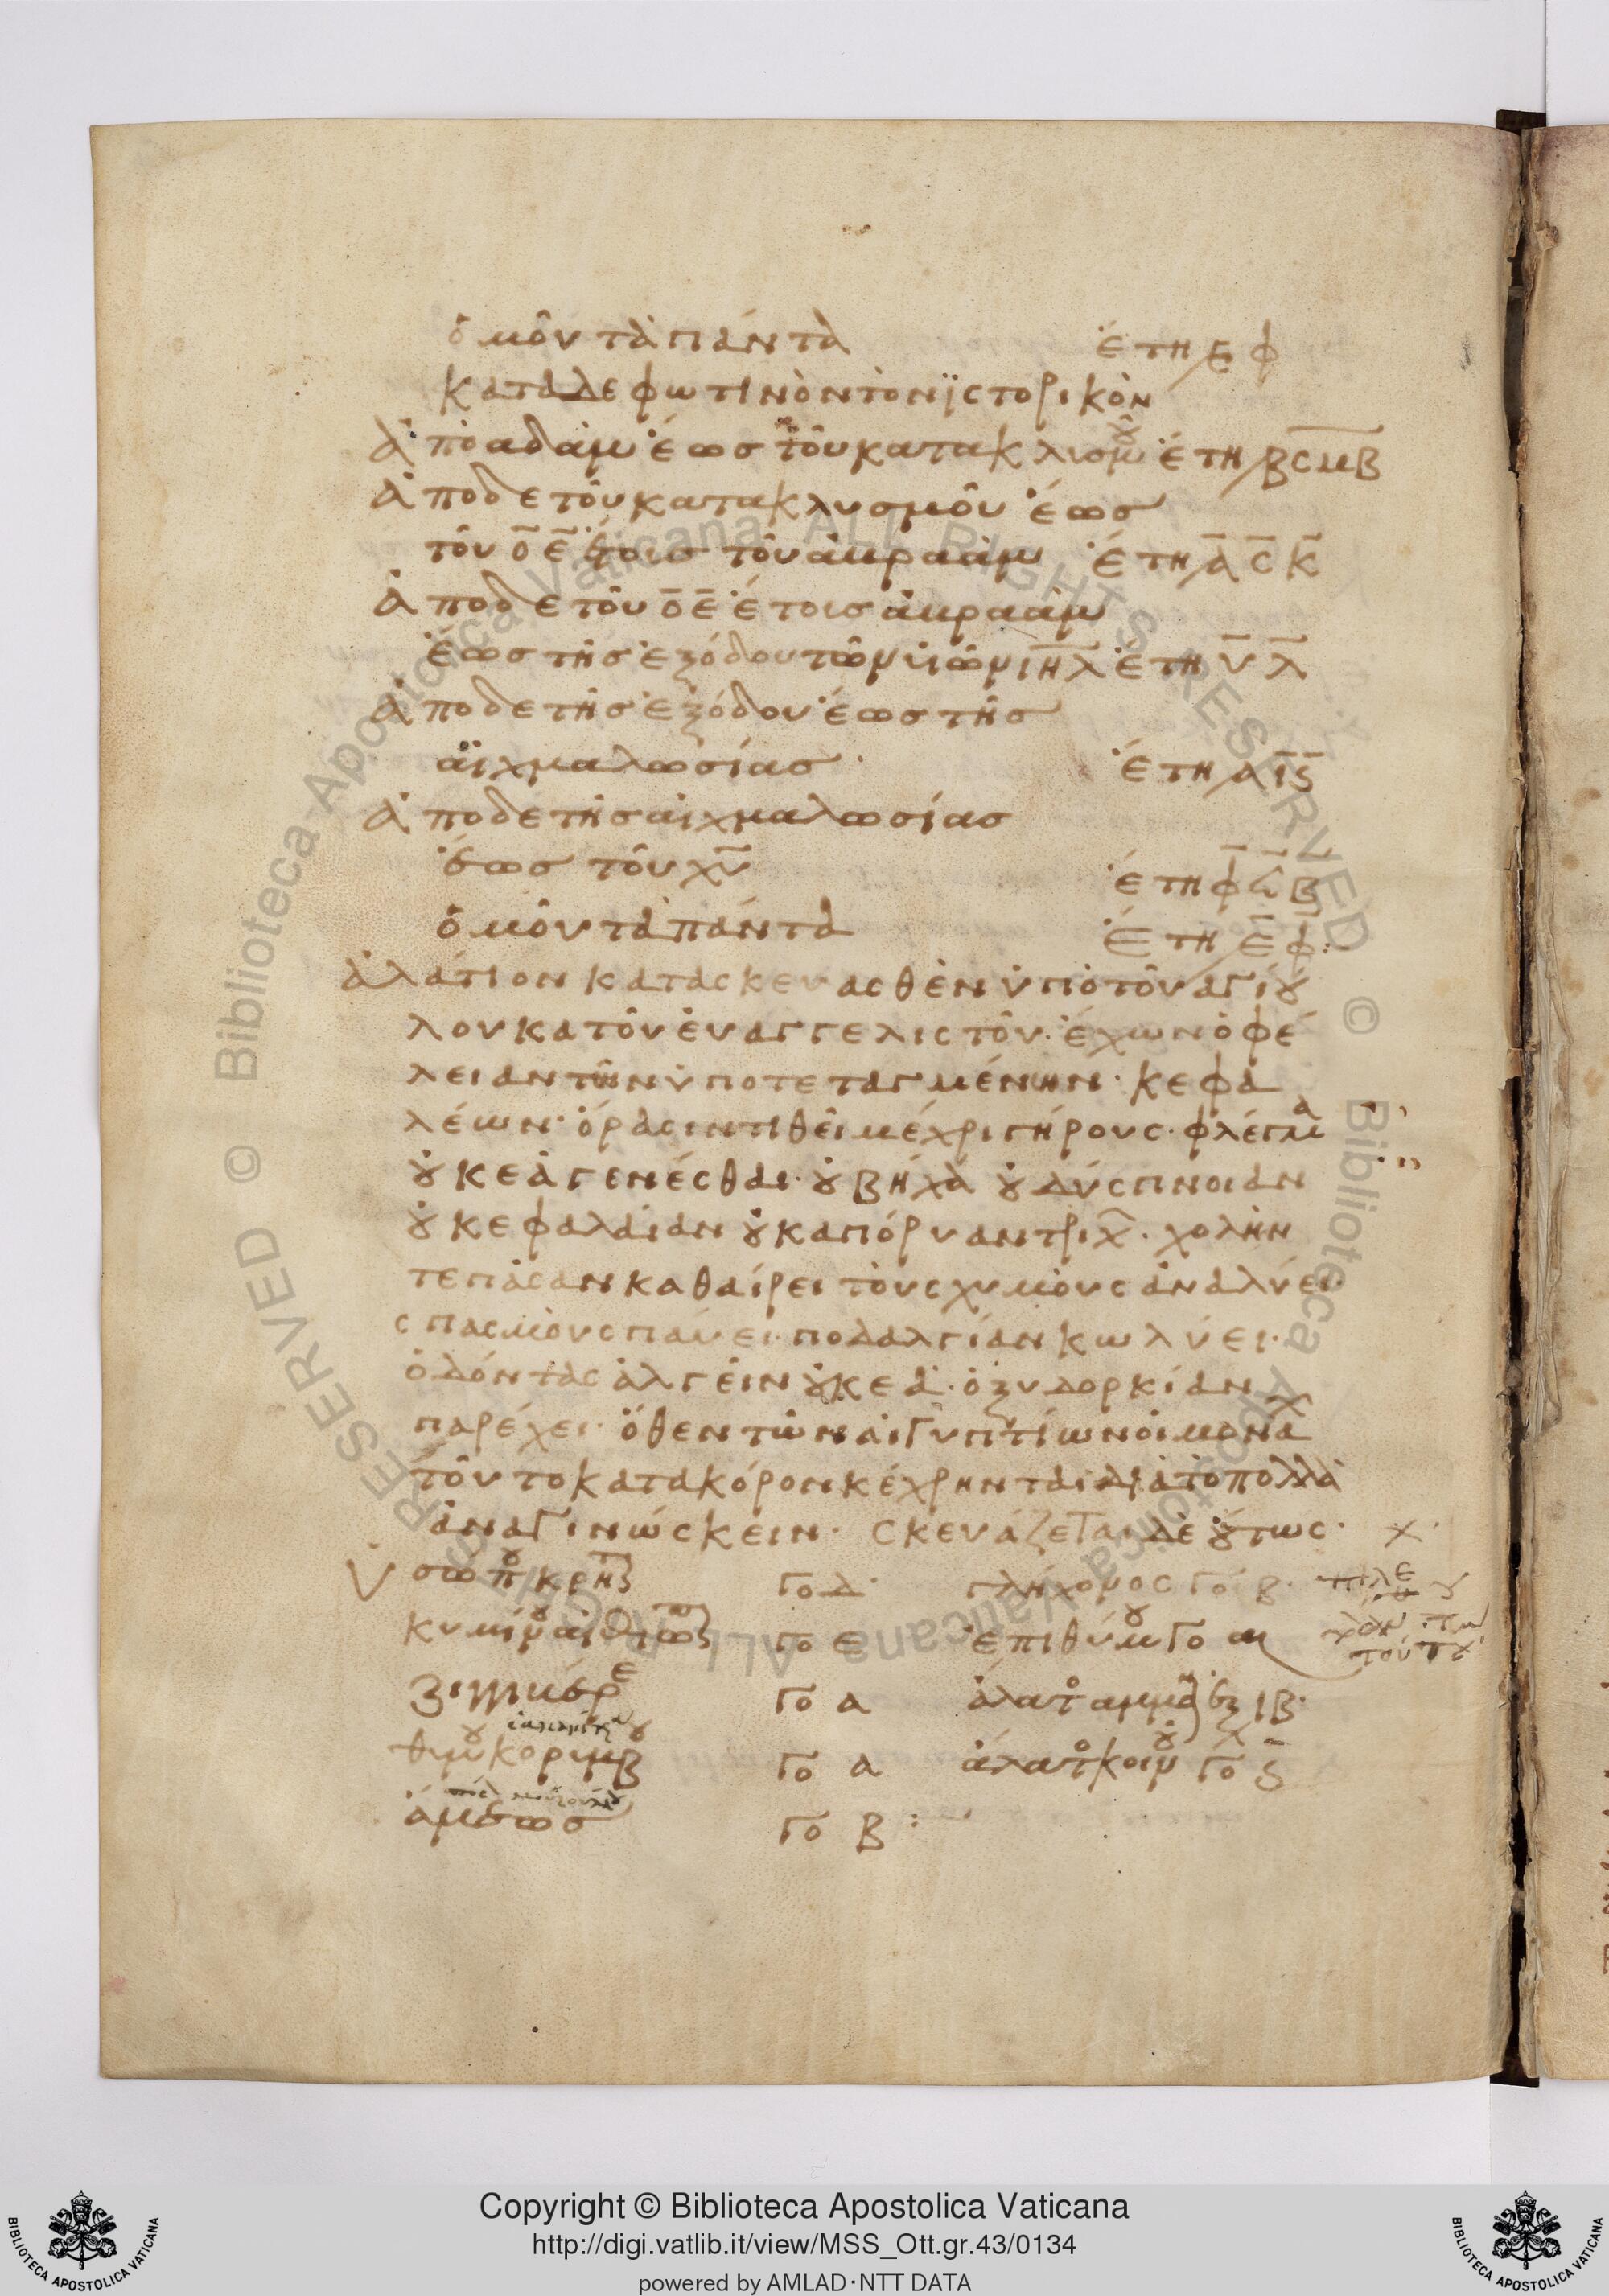 ὁμοῦ τὰ πάντα ἔτη ͵εφ
κατα δε φωτινὸν τὸν ϊστορικὸν
Ἀπὸ αδὰμ ἕως τοῦ κατακλισμοῦ ἔτη ͵βσμβ
Ἀπο δε τοῦ κατακλυσμοῦ ἕως
τοῦ ο̅ε̅ ἔτοις τοῦ ἀβρααμ ἔτη ͵ασκ
Ἀπο δε τοῦ ο̅ε̅ ἔτοις ἀβρααμ
ἕως τῆς ἐξόδου τῶν υἱῶν ιη̅λ ἔτη υλ
Ἀπο δε τῆς ἐξόδου ἕως τῆς
αἰχμαλωσίας· ἔτη ͵αιϛ
Ἀπο δε τῆς αἰχμαλωσίας
ἕως τοῦ χυ̅ ἔτη φϟβ
ὁμοῦ τὰ πάντα ἔτη ͵εφ:
ἁλάτιον κατασκευασθὲν ὑπὸ τοῦ αγίου
λουκα τοῦ ἐυαγγελιστοῦ· ἔχων ὀφέ
λειαν τὴν ὑποτεταγμένην· κεφα
λέων· ὅρασιν τιθεῖ μέχρι γήρους· φλέγμα
οὐκ εᾶ γενέσθαι· οὐ βήχα οὐ δύσπνοιαν
οὐ κεφαλαίαν οὐ καπόρυαν τριχ· χολὴν
τε πᾶσαν καθαίρει τοὺς χυμοὺς ἀναλύει·
σπασμοὺς παύει· ποδαλγίαν κωλύει·
ὀδόντας ἀλγεῖν οὐκ εᾶ· ὀξυδορκίαν
παρέχει· ὅθεν τῶν αἰγυπτίων οἱ μοναχ
τοῦτο κατακόρον κέχρηνται διὰ τὸ πολλὰ
ἀναγινώσκειν· σκευάζεται δὲ οὕτως·
ὑσώπου κρητ γο δ· γλήχονος γο β·
κυμίνου αἰθιωπ γο ε ἐπιθύμου γο
ζιγγιβέρε γο α ἅλατο αμμα ἑξ ιβ·
θιμου γο α ἅλατο κοιν γο ϛ
ἄμεως γο β :
Copyright © Biblioteca Apostolica Vaticana
http://digi.vatlib.it/view/MSS_Ott.gr.43/0134
powered by AMLAD·NTT DATA